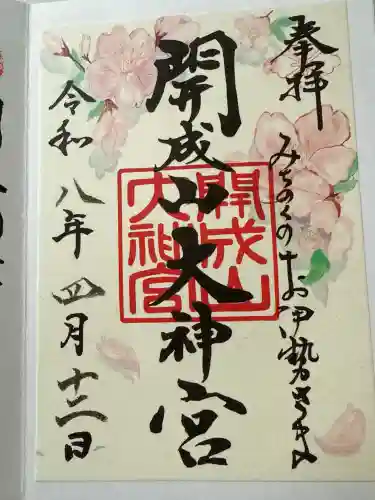 奉拝
みちのくのお伊勢さま
開成山大神宮
開成山
大神宮
令和八年四月十二日